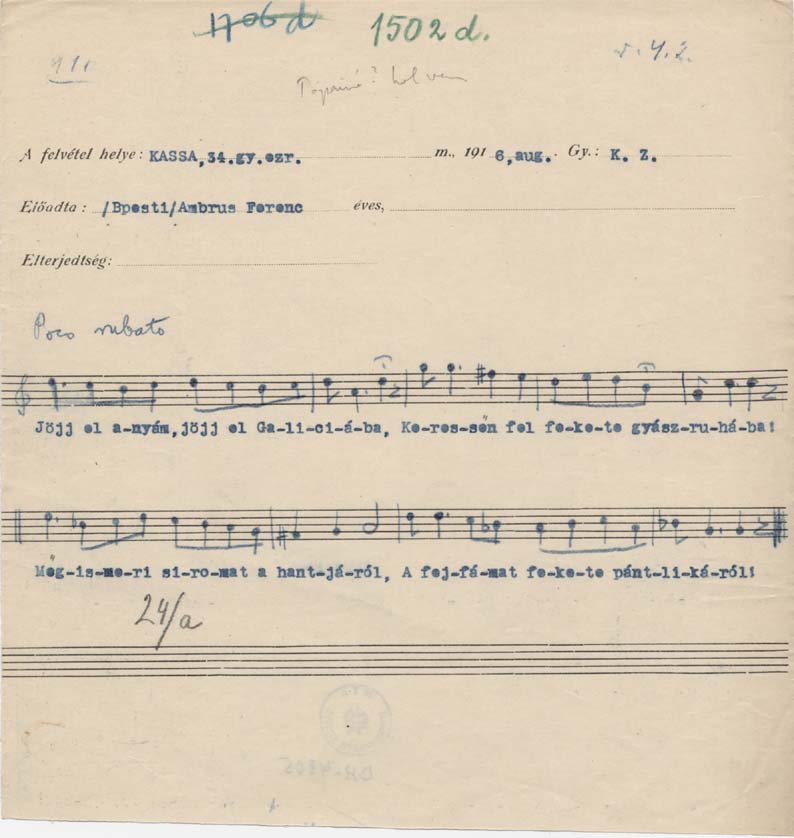 1706 d 1502 d.
911
hol van
A felvétel helye: KASSA,34.gy.ezr. m., 191 6,aug. Gy.: K. Z.
Előadta: /Bpesti/Ambrus Ferenc éves,
Elterjedtség:
Poco rubato
Jöjj el a-nyám,jöjj el Ga-li-ci-á-ba, Ke-res-sën fel fe-ke-te gyász-ru-há-ba!
Mëg-is-me-ri si-ro-mat a hant-já-ról, A fej-fá-mat fe-ke-te pánt-li-ká-ról!
24/a